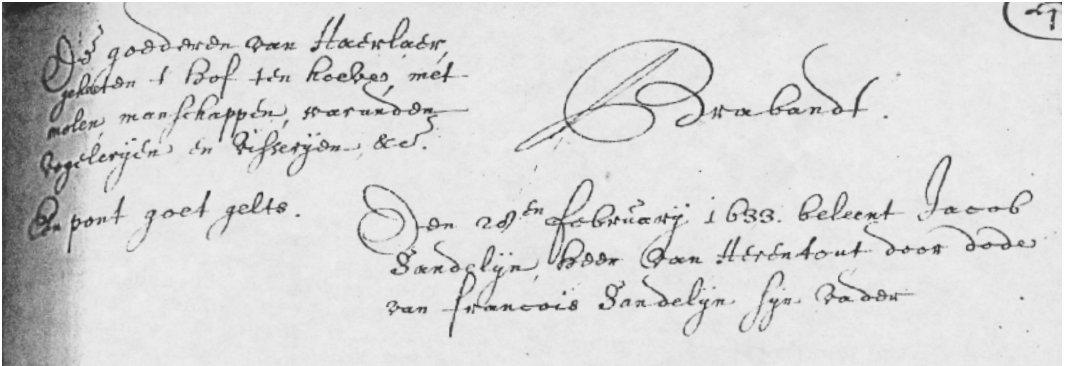 De goederen van Haerlaer,
geheeten t hof ten hoeve, met
molen, manschappen, waranden
vogelerijen en visserijen, &c.
Een pont goet gelts.
Brabandt.
Den 28en February 1633. beleent Jacob
Sandelijn, heer van Herentout door dode
van Francois Sandelijn syn vader